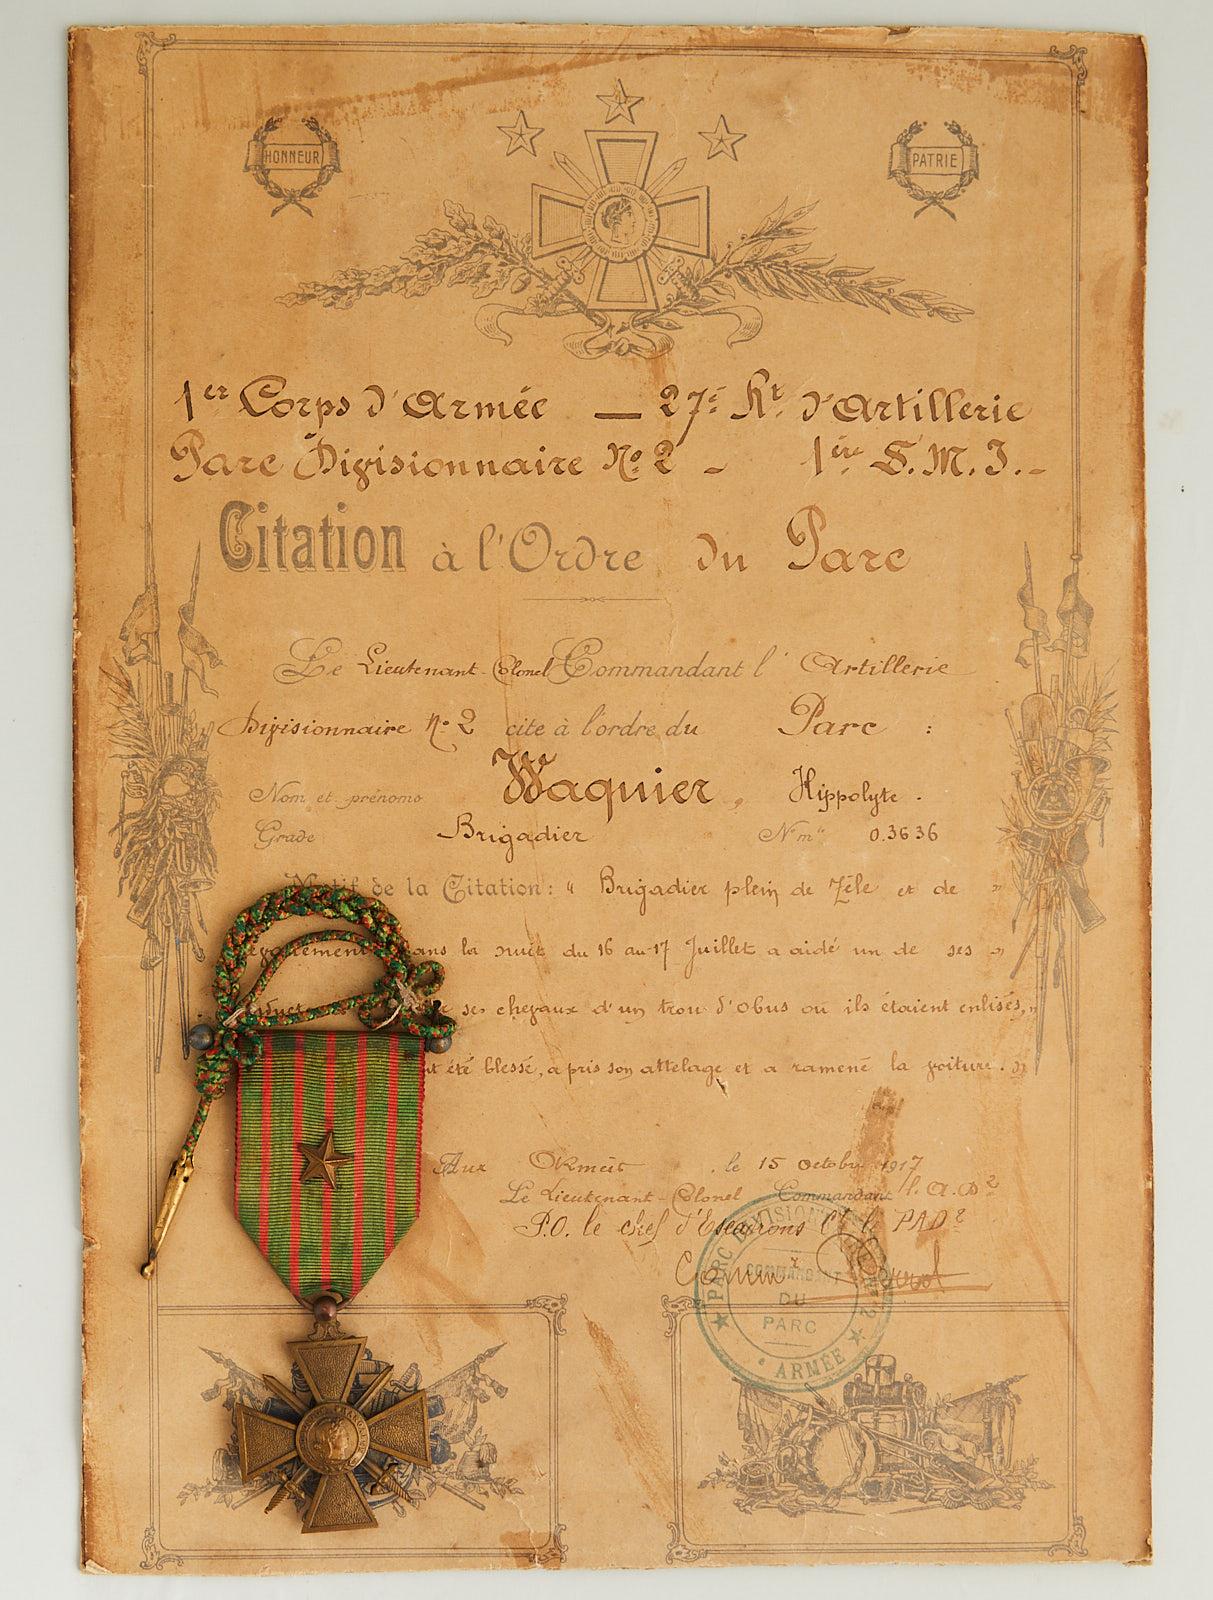 HONNEUR
PATRIE
1er Corps d'Armée — 27e Rt. d'Artillerie
Parc Divisionnaire No 2 - 1ère S.M.I. -
Citation à l'Ordre du Parc
Le Lieutenant-Colonel Commandant l'Artillerie
Divisionnaire No 2 cite à l'ordre du Parc :
Nom et prénoms Waquier, Hippolyte.
Grade Brigadier No mle 03636
Motif de la Citation : " Brigadier plein de Zèle et de "
dans la nuit du 16 au 17 Juillet a aidé un de ses "
ses chevaux d'un trou d'obus où ils étaient enlisés, "
été blessé, a pris son attelage et a ramené la voiture. "
Aux le 15 octobre 1917
Le Lieutenant-Colonel Commandant l'A.D2
P.O. le chef d'Escadrons Ct le PAD2
PARC DIVISION
COMMANDANT
DU
PARC
ARMÉE